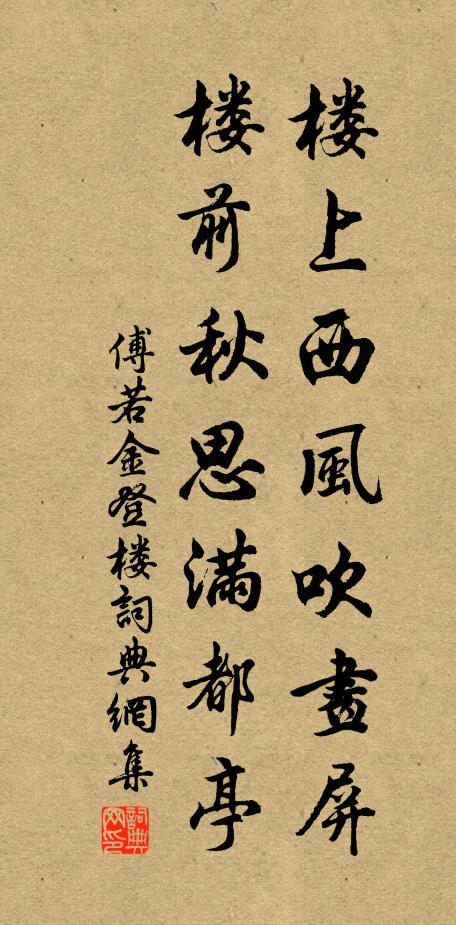 楼上西風吹畫屏
楼前秋思滿都亭
傅若金登楼詞典網集
詞典網印